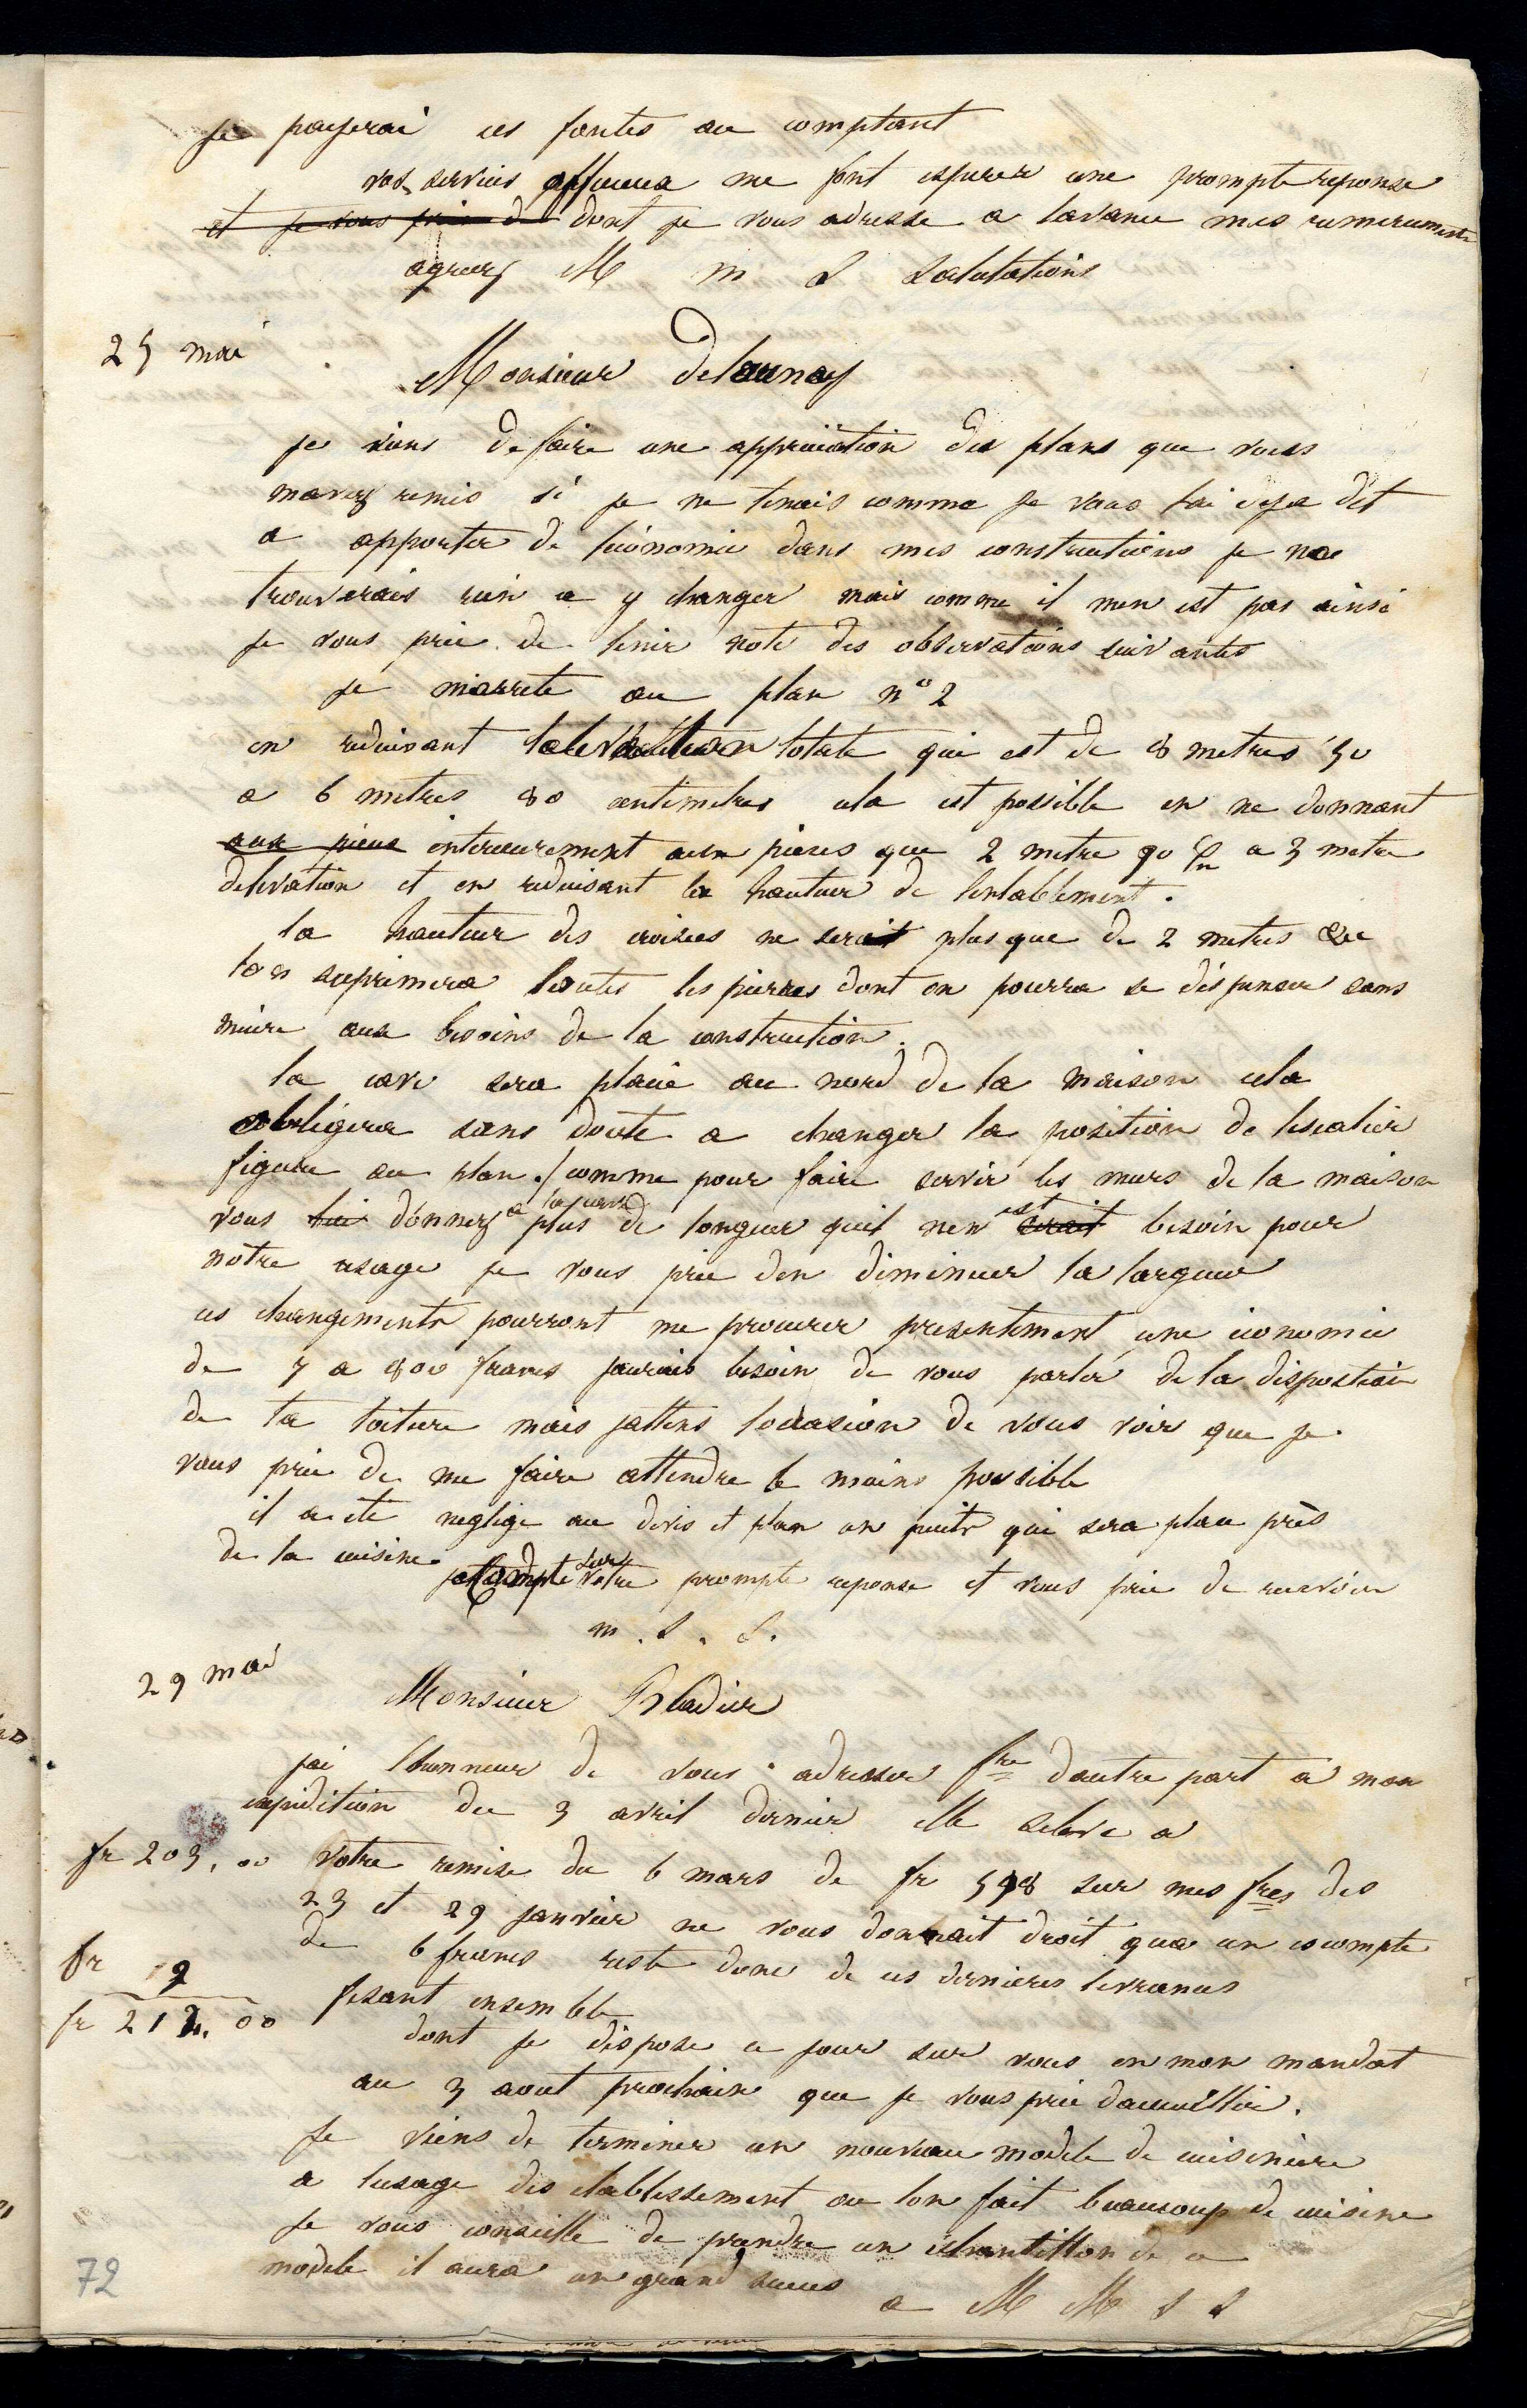 je payerai ces fontes au comptant
vos services affectueux me font esperer une prompte reponse
et je vous prie de dont je vous adresse a lavance mes remerciements
agreez M m S Salutations
25 mai
Monsieur Delaunay
je viens de faire une appreciation des plans que vous
mavez remis si je ne tenais comme je vous lai deja dit
a apporter de leconomie dans mes constructions je ne
trouverais rien a y changer mais comme il nen est pas ainsi
je vous prie de tenir note des observations suivantes
je marrete au plan n° 2
en reduisant lelevation totale qui est de 8 metres 50
a 6 metres 80 centimetres cela est possible en ne donnant
aux pieces interieurement aux pieces que 2 metre 90 c/m a 3 metre
delevation et en reduisant la hauteur de lentablement.
la hauteur des croisees ne serait plus que de 2 metres
lon suprimera toutes les pierres dont on pourra se dispenser sans
nuire aux besoins de la construction.
la cave sera placée au nord de la maison cela
obligera sans doute a changer la position de lescalier
figure au plan. / comme pour faire servir les murs de la maison
vous lui donnez a la cave plus de longueur quil nen serait est besoin pour
notre usage je vous prie den diminuer la largeur
ces changements pourront me procurer presentement une economie
de 7 a 800 francs jaurais besoin de vous parler de la dispostion
de la toiture mais jattens loccasion de vous voir que je
vous prie de me faire attendre le moins possible
il a ete neglige au devis et plan un puits qui sera place près
de la cuisine
je compte sur votre prompte reponse et vous prie de recevoir
m. S. S.
29 mai
Monsieur Bladier
jai lhonneur de vous adresser fre dautre part a mon
expedition du 3 avril dernier elle seleve a
fr 203,00 Votre remise du 6 mars de fr 598 sur mes fres des
23 et 29 janvier ne vous donnait droit qua un escompte
de 6 francs reste donc de ces dernieres livrances
fr 9
fr 212.00 fesant ensemble
dont je dispose ce jour sur vous en mon mandat
au 3 aout prochain que je vous prie daccueillir.
je viens de terminer un nouveau modele de cuisiniere
a lusage des etablissement ou lon fait beaucoup de cuisine
je vous conseille de prendre un echantillon de ce
modele il aura un grand succes
a M M S S
72